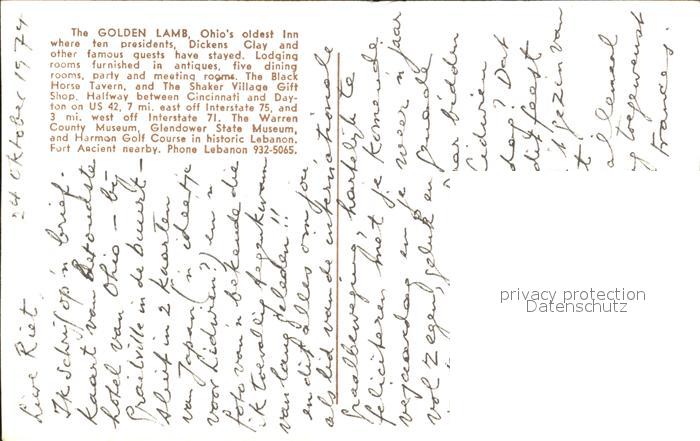 The GOLDEN LAMB, Ohio's oldest Inn
where ten presidents, Dickens Clay and
other famous guests have stayed. Lodging
rooms furnished in antiques, five dining
rooms, party and meeting rooms. The Black
Horse Tavern, and The Shaker Village Gift
Shop. Halfway between Cincinnati and Day-
ton on US 42, 7 mi. east off Interstate 75, and
3 mi. west off Interstate 71. The Warren
County Museum, Glendower State Museum,
and Harmon Golf Course in historic Lebanon.
Fort Ancient nearby. Phone Lebanon 932-5065.
24 Oktober 1974
Lieve Riet
Ik schrijf op 'n brief-
kaart van het oudste
hotel van Ohio - bij
Grailville in de buurt -
sluit in 2 kaarten
van Japan ('n ideetje
voor Lidwien?) en 'n
foto van 'n bekende die
ik toevallig tegenkwam
van lang geleden!!
en dit alles om jou,
als lid van de internationale
Graalbeweging, hartelijk te
feliciteren met je komende
verjaardag en je weer 'n jaar
vol zegen, geluk en genade
bidden
Lidwien
dag? Dat
dit feest
gezin van
allemaal
toegewenst
Frances
privacy protection
Datenschutz